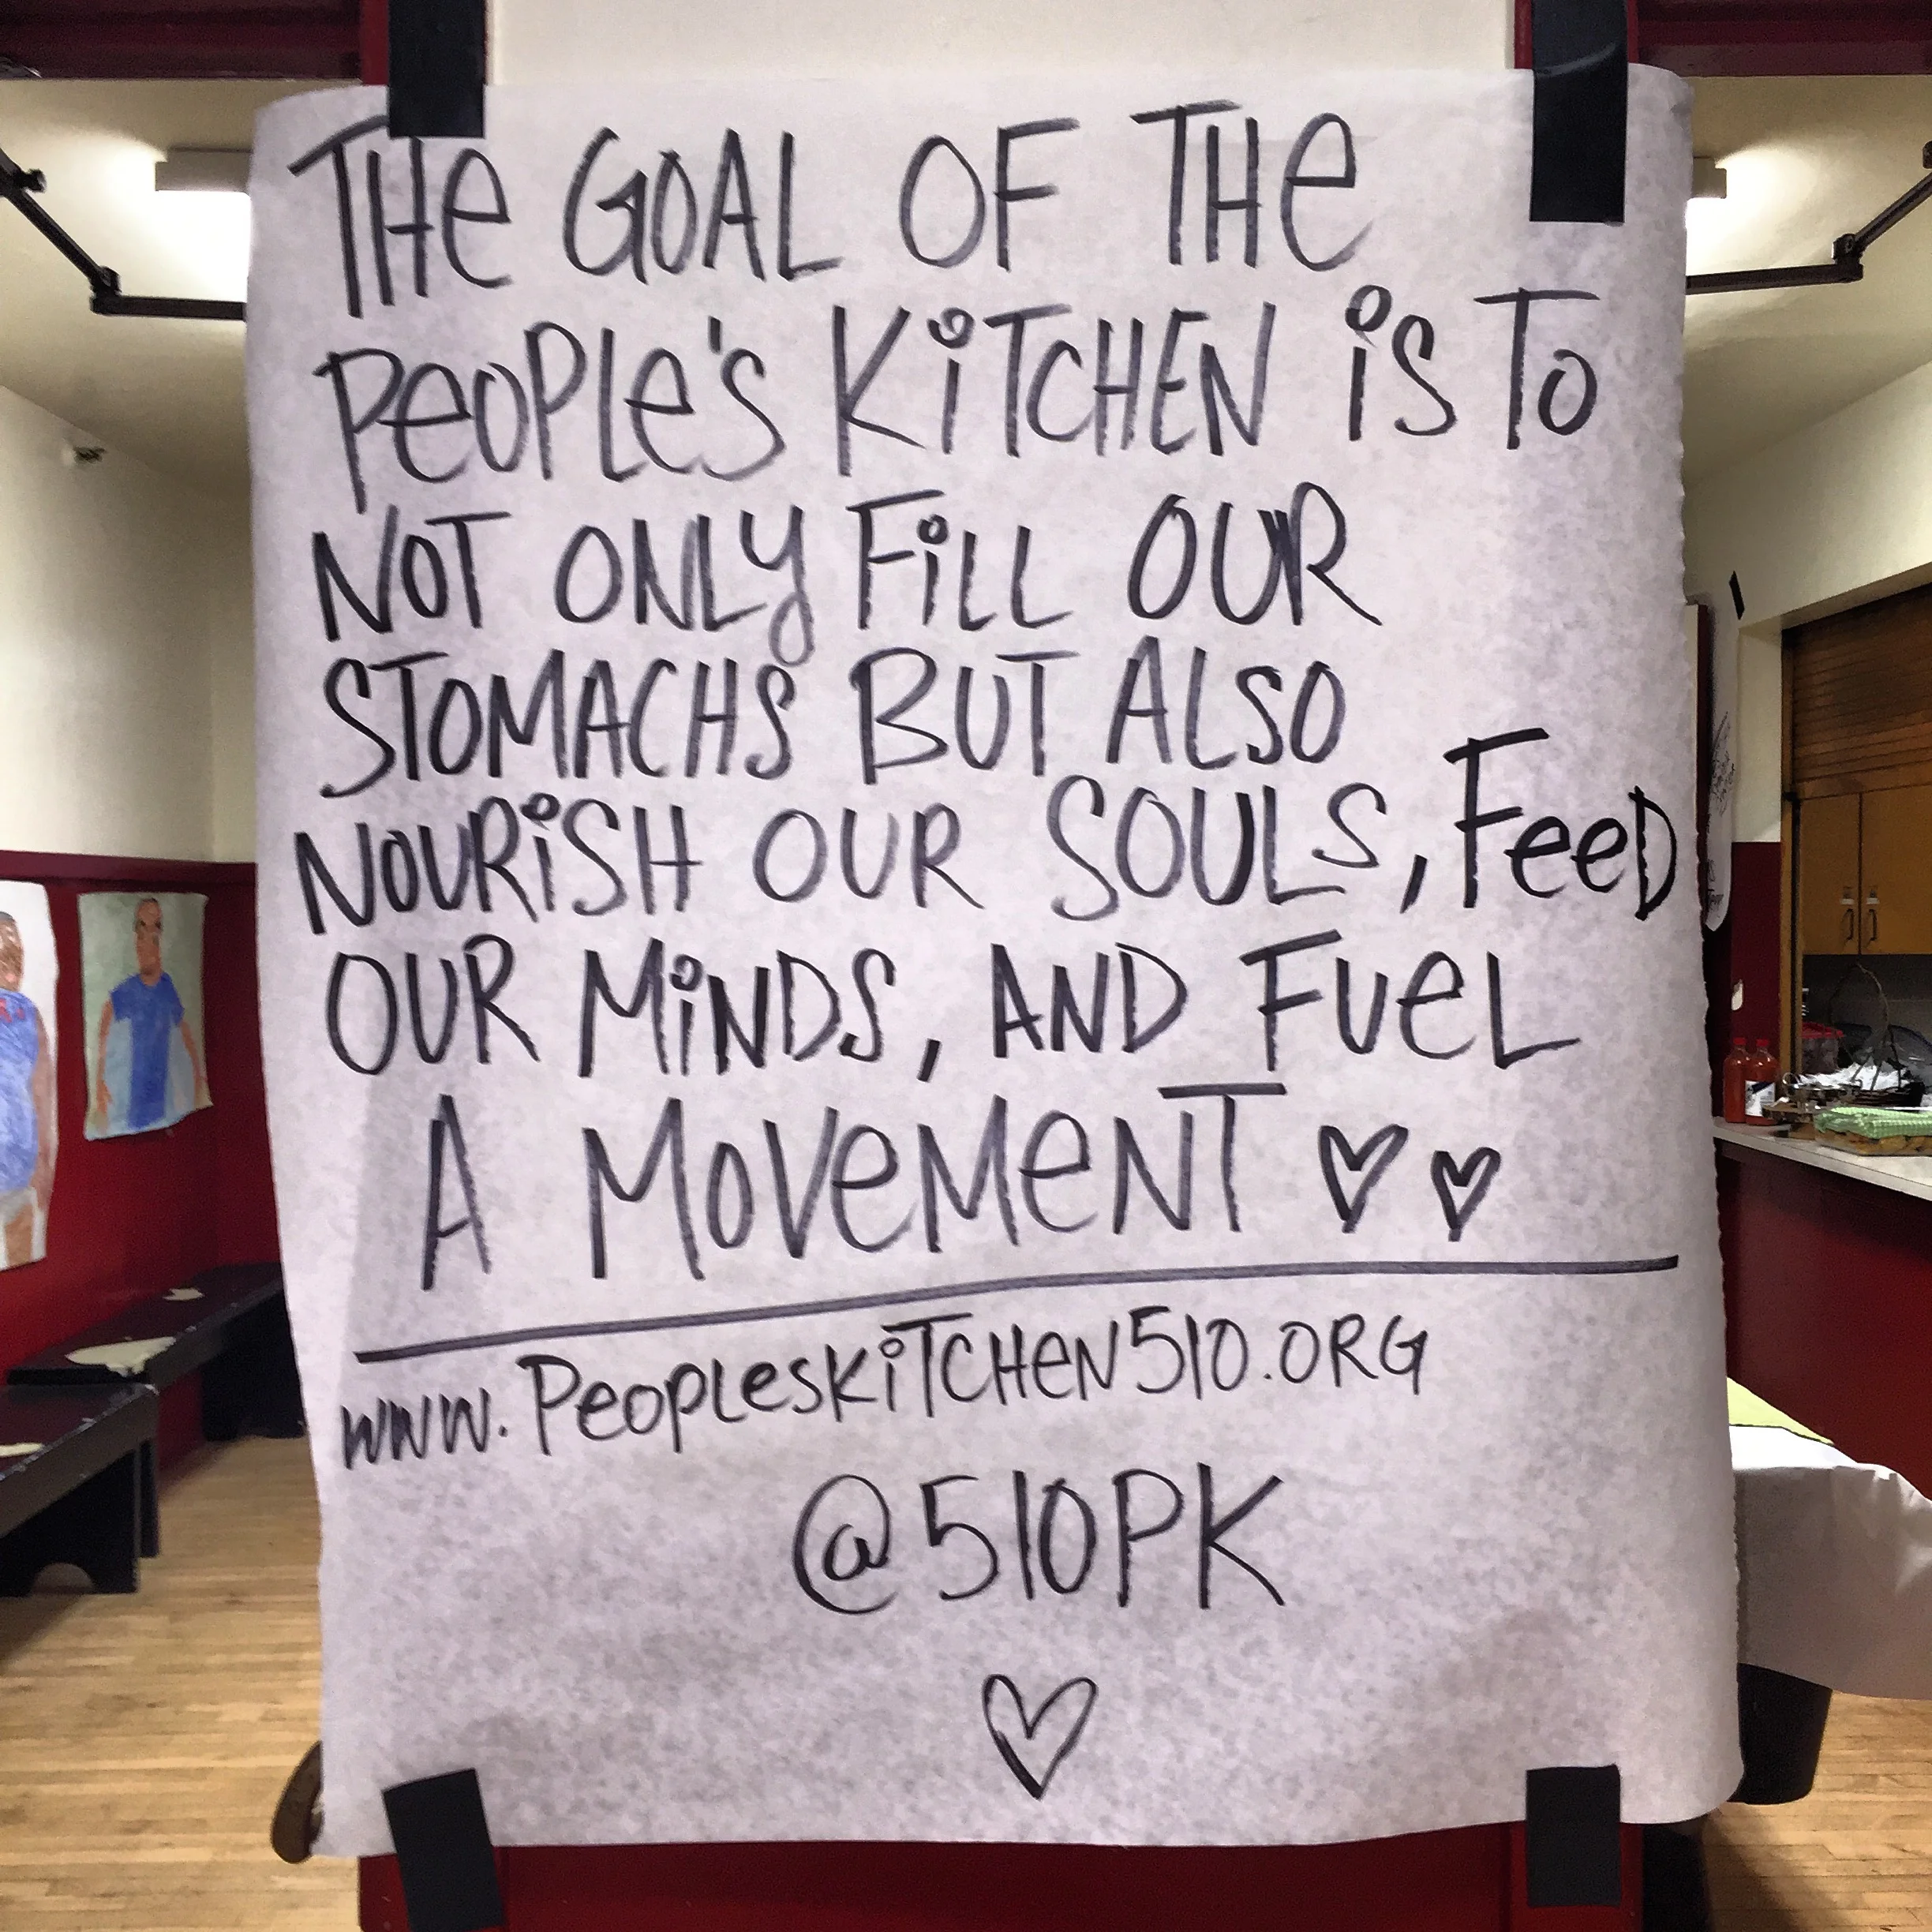 THe GOAL OF THe
PeOPLe's KiTCHEN iS TO
NOT ONLY FiLL OUR
STOMACHS BUT ALSO
NOURiSH OUR SOULS, FeeD
OUR MiNDS, AND FUeL
A MOVeMeNT ♡ ♡
www.PeOPLesKiTCHeN510.ORG
@510PK
♡